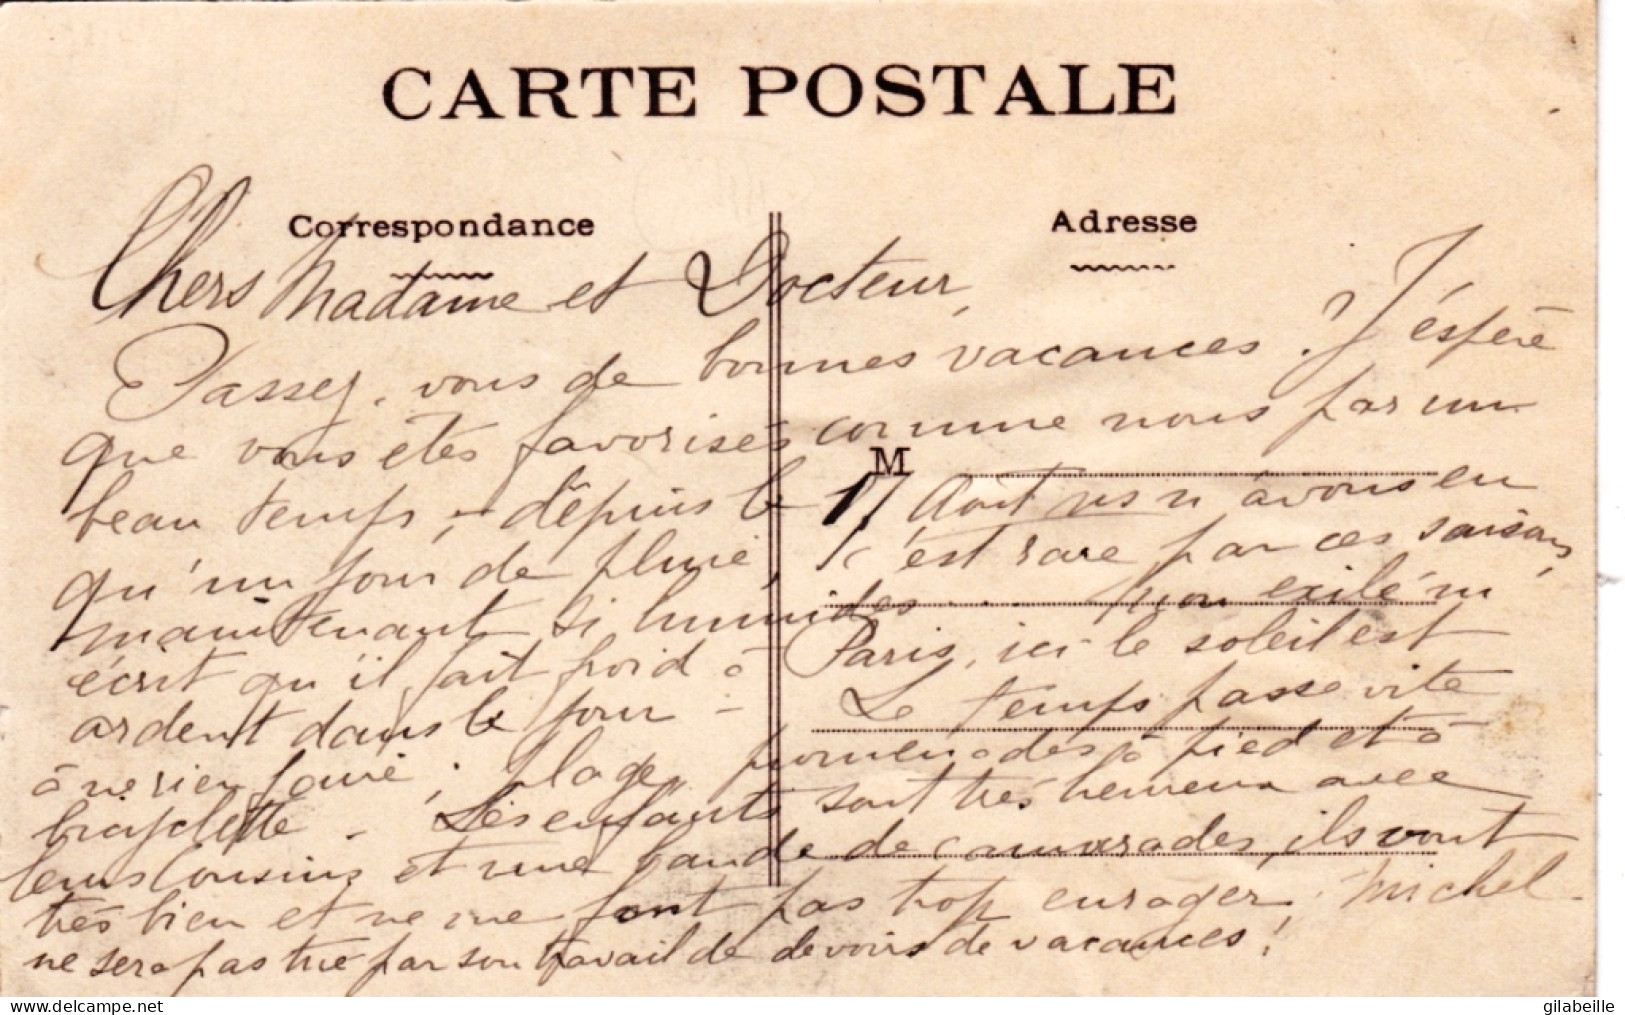 CARTE POSTALE
Correspondance
Adresse
Chers Madame et Docteur,
Passez-vous de bonnes vacances ? J'éspère
que vous êtes favorisés comme nous par un
beau temps, depuis le 17 Août ns n'avons eu
qu'un jour de pluie, c'est rare par ces saisons
maintenant si humides... mon exilé m'
écrit qu'il fait froid à Paris, ici le soleil est
ardent dans le jour - Le temps passe vite
à ne rien faire ; plage, promenades à pied et à
bicyclette - Les enfants sont très heureux avec
leurs Cousins et une bande de camarades, ils vont
très bien et ne me font pas trop enrager. Michel
ne sera pas tué par son travail de devoirs de vacances !
M
gilabeille